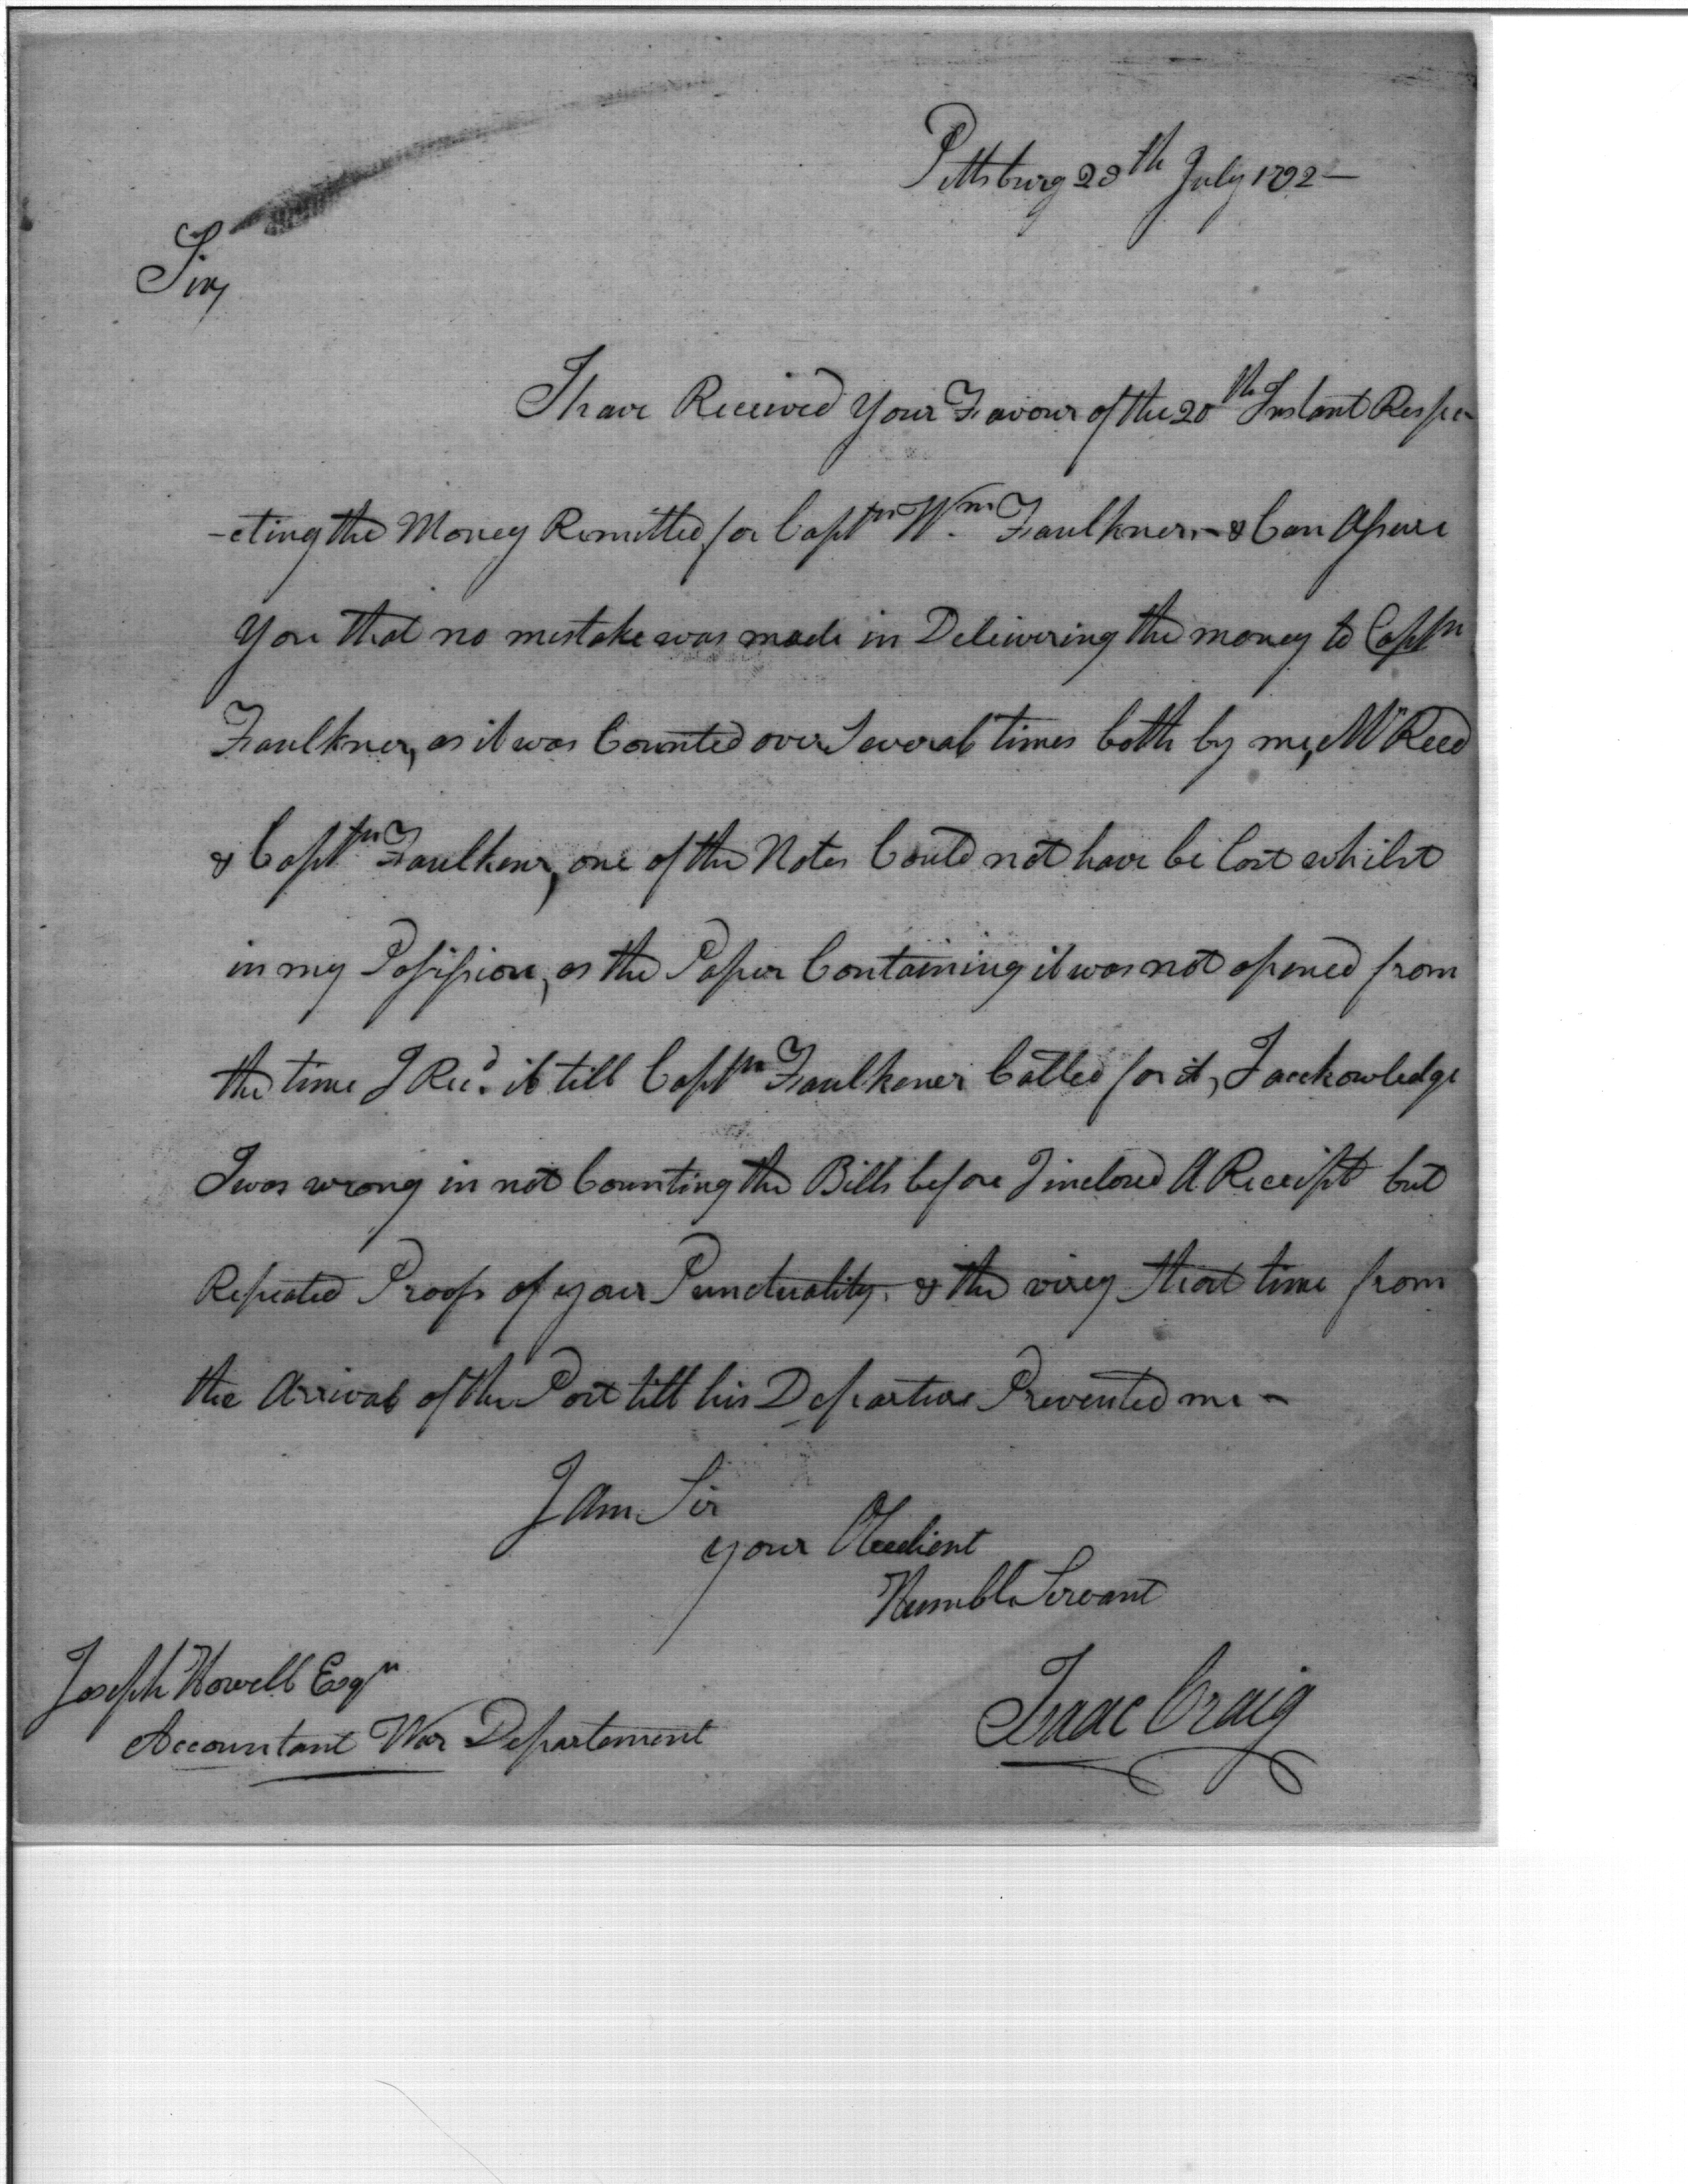 Pittsburg 28th July 1792 —
Sir,
I have Received Your Favour of the 20th Instant Respe-
-cting the Money Remitted for Captn Wm. Faulkner — & Can Assure
You that no mistake was made in Delivering the money to Captn
Faulkner, as it was Counted over Several times both by me, Mr Reed
& Captn Faulkner, one of the Notes Could not have be lost whilst
in my Possission, as the Paper Containing it was not opened from
the time I Recd. it till Captn Faulkener Called for it, I acckowledge
I was wrong in not Counting the Bills before I inclosed A Receipt but
Repeated Proofs of your Punctuality. & the virey short time from
the Arrival of the Post till his Departure Prevented me —
I am Sir
your Obedient
Humble Servant
Isaac Craig
Joseph Howell Esqr
Accountant War Departement